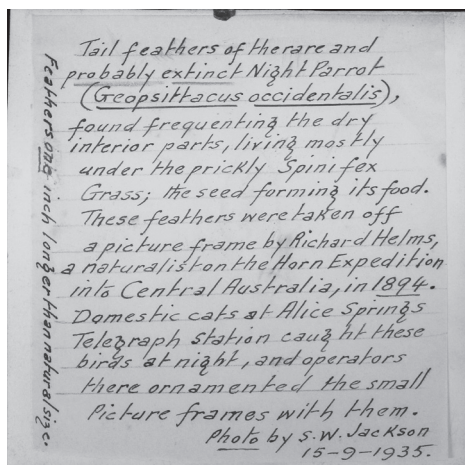 Tail feathers of the rare and
probably extinct Night Parrot
(Geopsittacus occidentalis),
found frequenting the dry
interior parts, living mostly
under the prickly Spinifex
Grass; the seed forming its food.
These feathers were taken off
a picture frame by Richard Helms,
a naturalist on the Horn Expedition
into Central Australia, in 1894.
Domestic cats at Alice Springs
Telegraph Station caught these
birds at night, and operators
there ornamented the small
Picture frames with them.
Photo by S. W. Jackson
15-9-1935.
Feathers one inch longer than natural size.